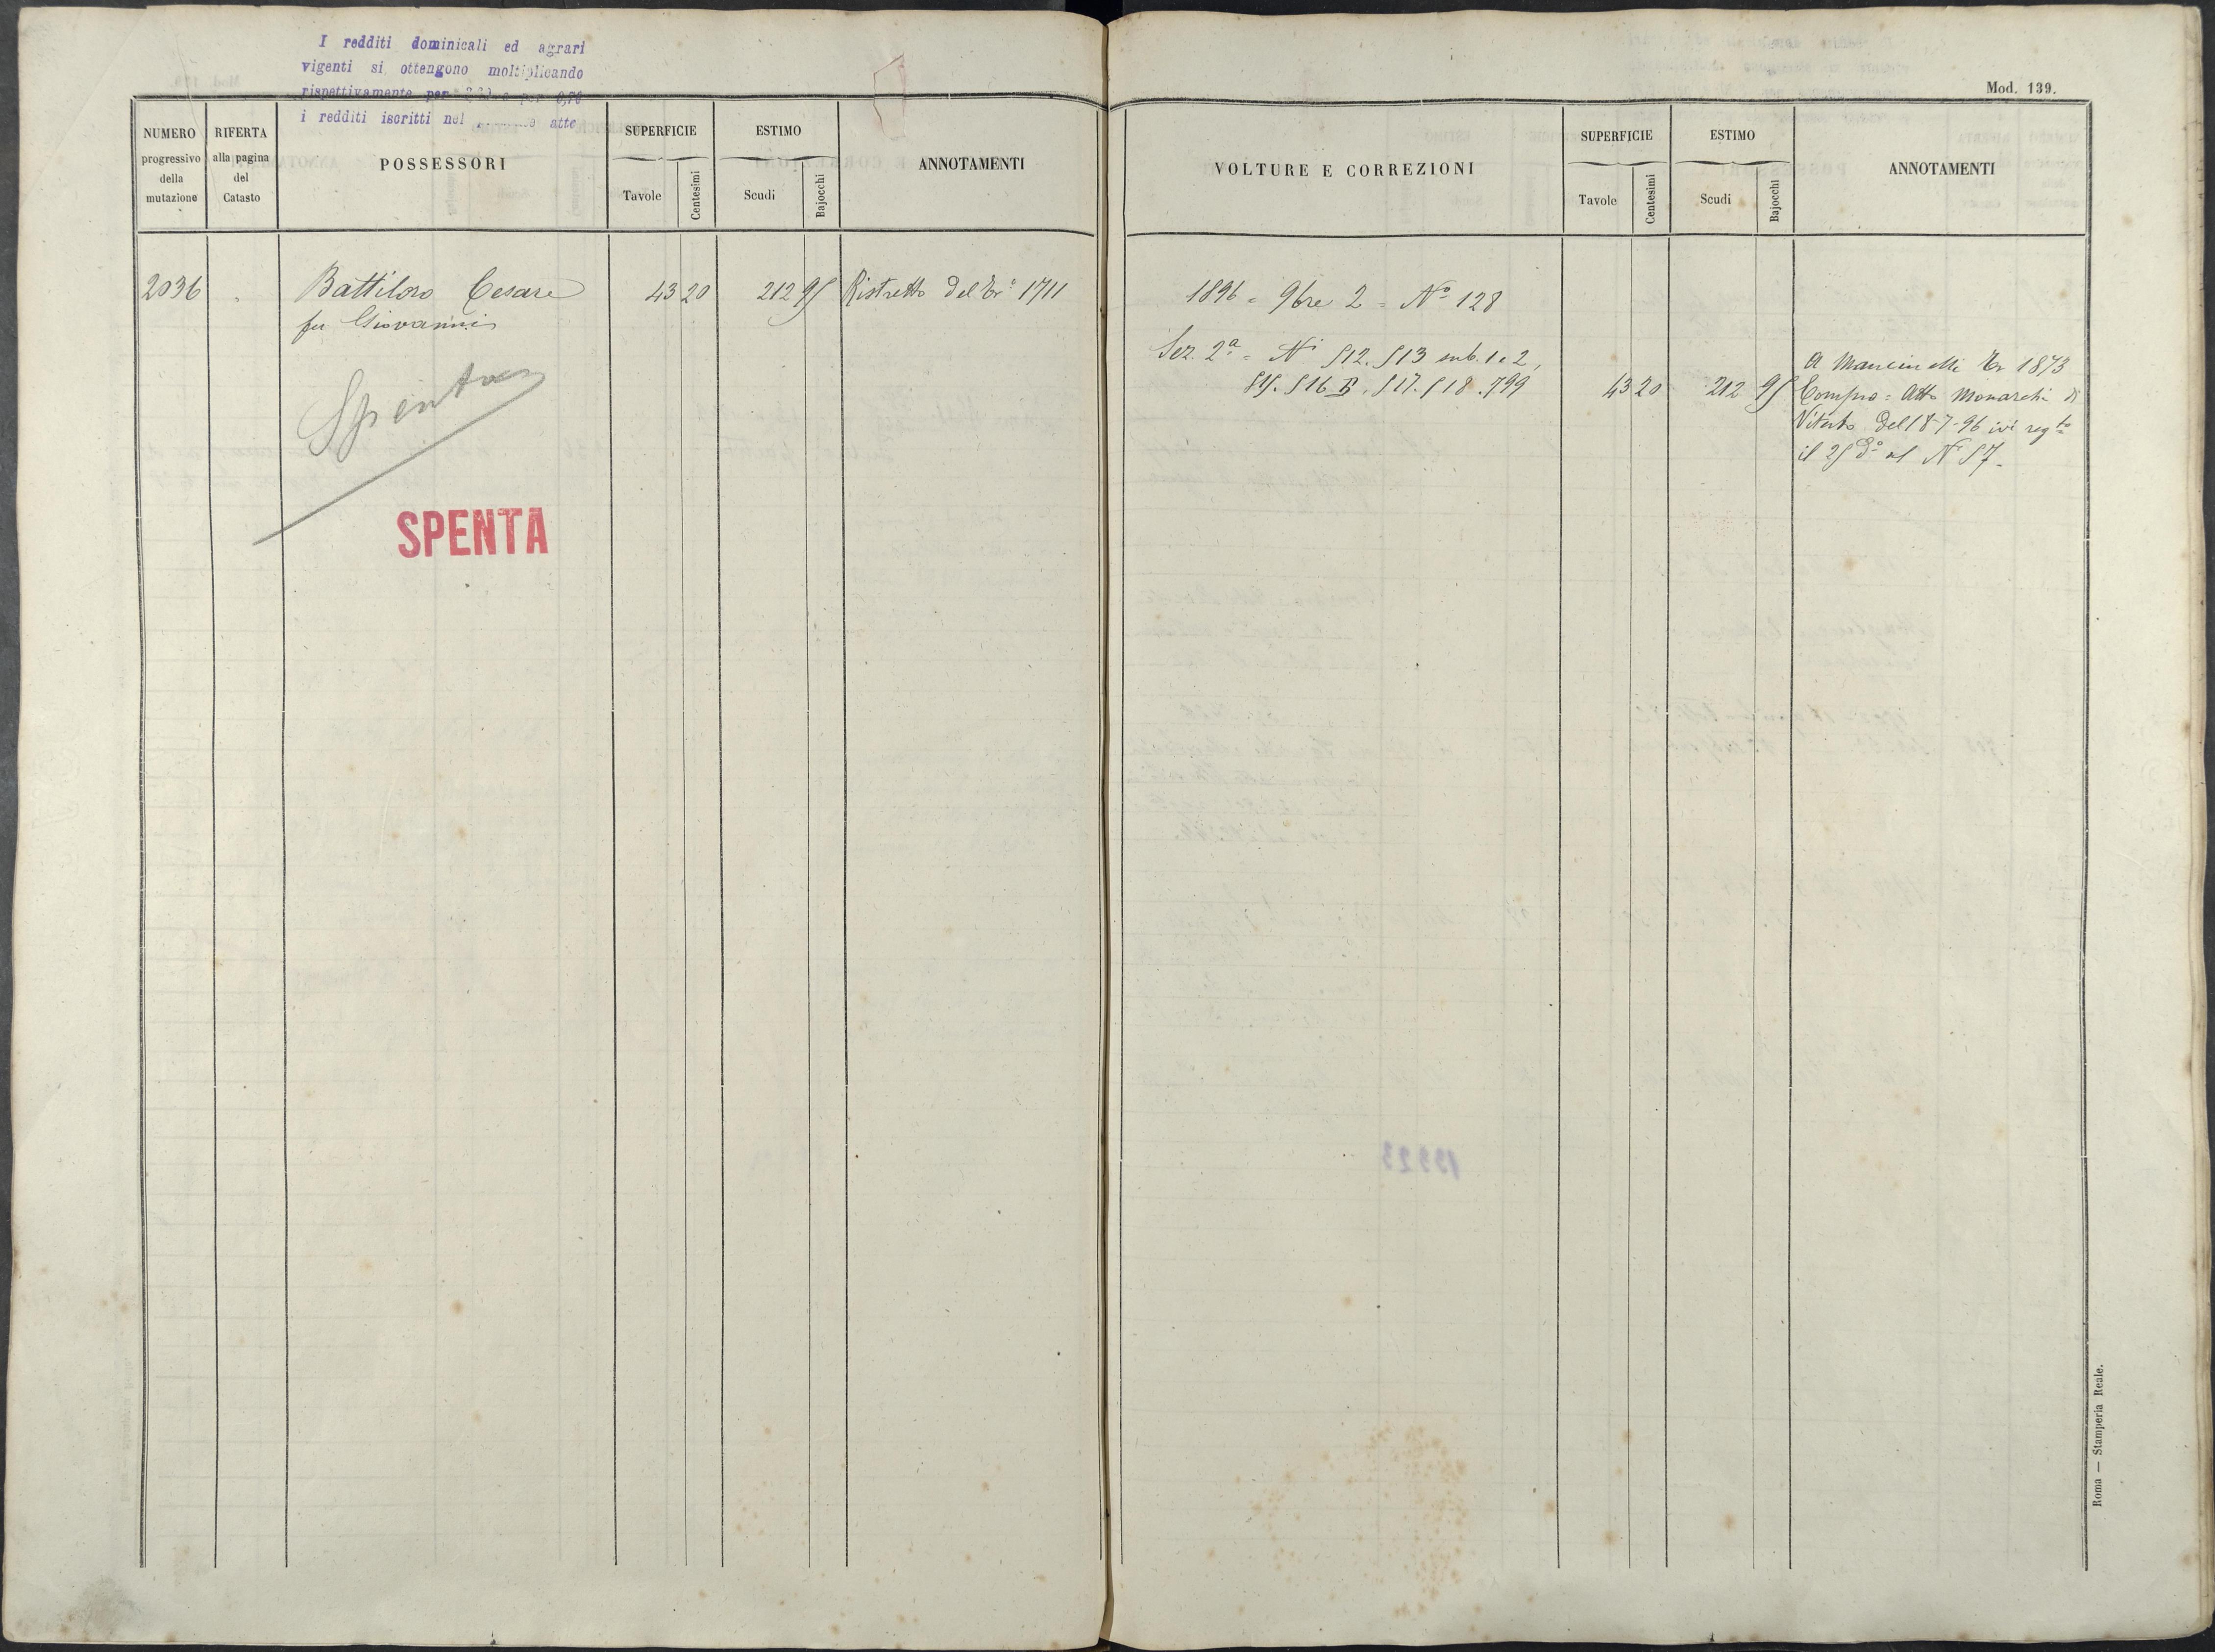 I redditi dominicali ed agrari
vigenti si ottengono moltiplicando
rispettivamente per
i redditi iscritti nel atto
NUMERO progressivo della mutazione
RIFERTA alla pagina del Catasto
POSSESSORI
SUPERFICIE
Tavole Centesimi
ESTIMO
Scudi Bajocchi
ANNOTAMENTI
2036 Battiloro Cesare 43 20 212 95 Ristretto del Tr° 1711
fu Giovanni
Spenta
SPENTA
Mod. 139.
VOLTURE E CORREZIONI
SUPERFICIE
Tavole Centesimi
ESTIMO
Scudi Bajocchi
ANNOTAMENTI
1896 = 9bre 2 = N° 128
Sez. 2ª = Ni 512. 513 sub. 1 e 2,
515. 516 . 517. 518. 799 43 20 212 95
A Mancinelli Tr 1873
Compra = Atto Monarchi di
Viterbo del 18-7-96 ivi regto
il 25 do al N° 57.
Roma — Stamperia Reale.